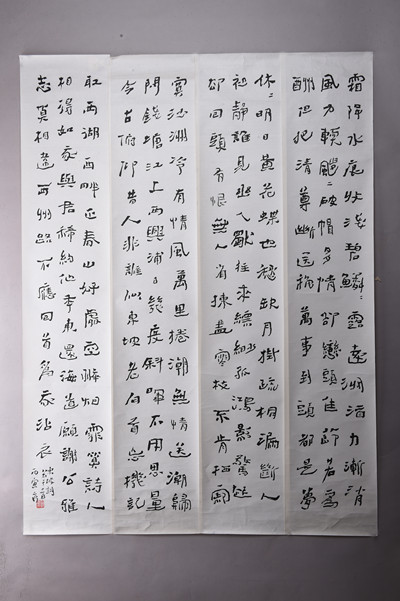 霜降水痕收淺碧鱗〻露遠洲酒力漸消
風力輭颼〻破帽多情卻戀頭佳節若
酬但把清尊斷送秋萬事到頭都是夢
休〻明日黃花蝶也愁缺月掛疏桐漏斷人
初靜誰見幽人獨往來縹緲孤鴻影驚起
卻回頭有恨無人省揀盡寒枝不肯栖寂
寞沙洲冷有情風萬里捲潮無情送潮歸
問錢塘江上西興浦口幾度斜暉不用思量
今古俯仰昔人非誰似東坡老白首忘機記
取西湖西畔正春山好處空翠烟霏算詩人
相得如我與君稀約他年東還海道願謝公雅
志莫相違西州路不應回首為我沾衣
丙寅